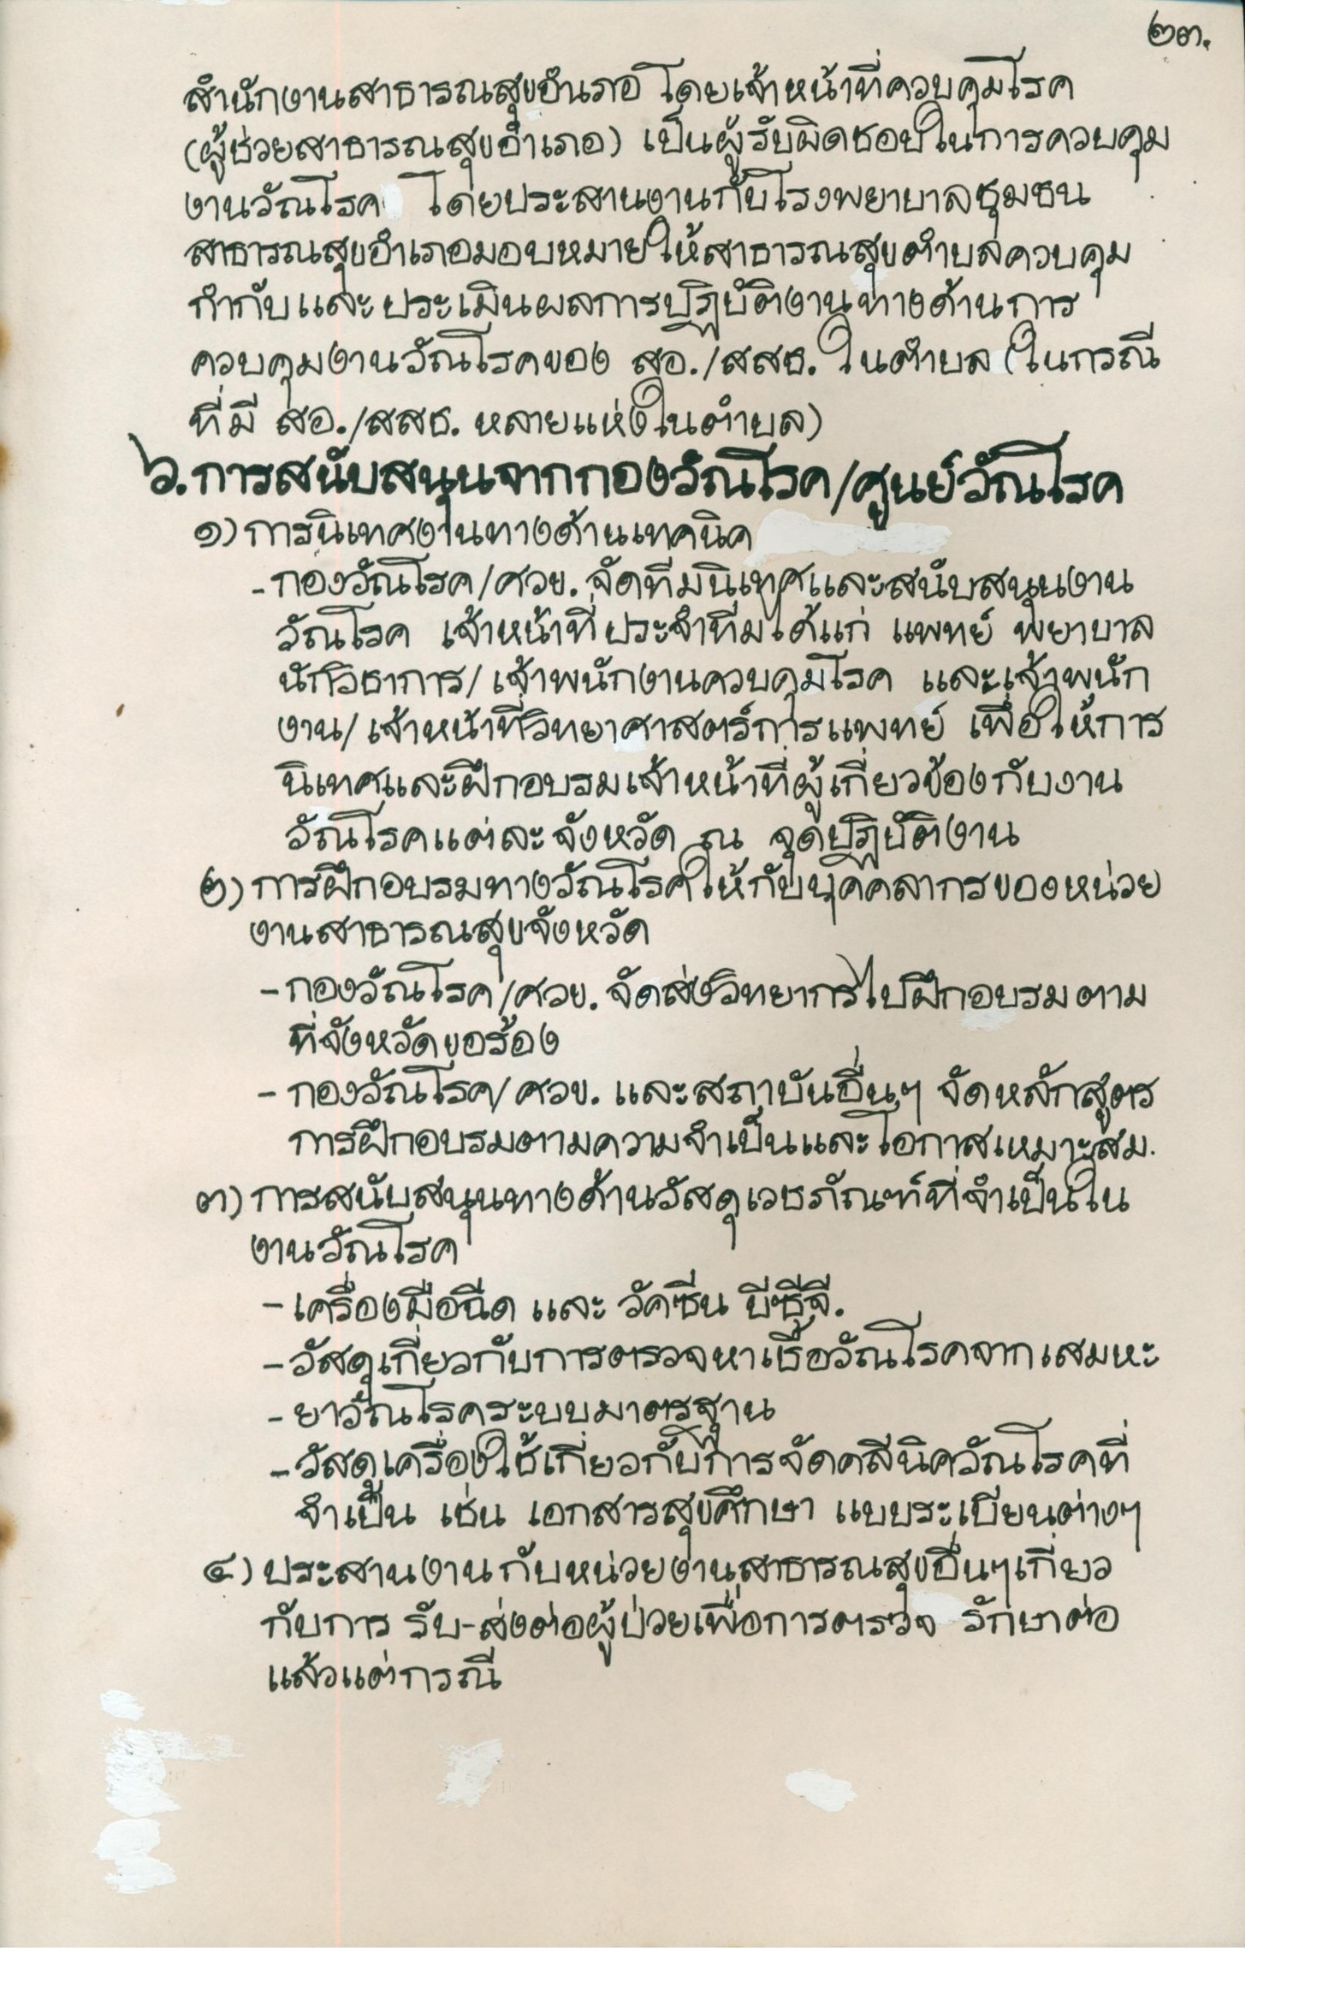 ๒๓.
สำนักงานสาธารณสุขอำเภอ โดยเจ้าหน้าที่ควบคุมโรค
(ผู้ช่วยสาธารณสุขอำเภอ) เป็นผู้รับผิดชอบในการควบคุม
งานวัณโรค โดยประสานงานกับโรงพยาบาลชุมชน
สาธารณสุขอำเภอมอบหมายให้สาธารณสุขตำบลควบคุม
กำกับและประเมินผลการปฏิบัติงานทางด้านการ
ควบคุมงานวัณโรคของ สอ./สสช. ในตำบล (ในกรณี
ที่มี สอ./สสช. หลายแห่งในตำบล)
๖. การสนับสนุนจากกองวัณโรค/ศูนย์วัณโรค
๑) การนิเทศงานทางด้านเทคนิค
- กองวัณโรค/ศวข. จัดทีมนิเทศและสนับสนุนงาน
วัณโรค เจ้าหน้าที่ประจำทีมได้แก่ แพทย์ พยาบาล
นักวิชาการ/เจ้าพนักงานควบคุมโรค และเจ้าพนัก
งาน/เจ้าหน้าที่วิทยาศาสตร์การแพทย์ เพื่อให้การ
นิเทศและฝึกอบรมเจ้าหน้าที่ผู้เกี่ยวข้องกับงาน
วัณโรคแต่ละจังหวัด ณ จุดปฏิบัติงาน
๒) การฝึกอบรมทางวัณโรคให้กับบุคคลากรของหน่วย
งานสาธารณสุขจังหวัด
- กองวัณโรค/ศวข. จัดส่งวิทยากรไปฝึกอบรมตาม
ที่จังหวัดขอร้อง
- กองวัณโรค/ศวข. และสถาบันอื่นๆ จัดหลักสูตร
การฝึกอบรมตามความจำเป็นและโอกาสเหมาะสม.
๓) การสนับสนุนทางด้านวัสดุเวชภัณฑ์ที่จำเป็นใน
งานวัณโรค
- เครื่องมือฉีด และ วัคซีน บีซีจี.
- วัสดุเกี่ยวกับการตรวจหาเชื้อวัณโรคจากเสมหะ
- ยาวัณโรคระบบมาตรฐาน
- วัสดุเครื่องใช้เกี่ยวกับการจัดคลีนิควัณโรคที่
จำเป็น เช่น เอกสารสุขศึกษา แบบระเบียนต่างๆ
๔) ประสานงานกับหน่วยงานสาธารณสุขอื่นๆเกี่ยว
กับการ รับ-ส่งต่อผู้ป่วยเพื่อการตรวจ รักษาต่อ
แล้วแต่กรณี